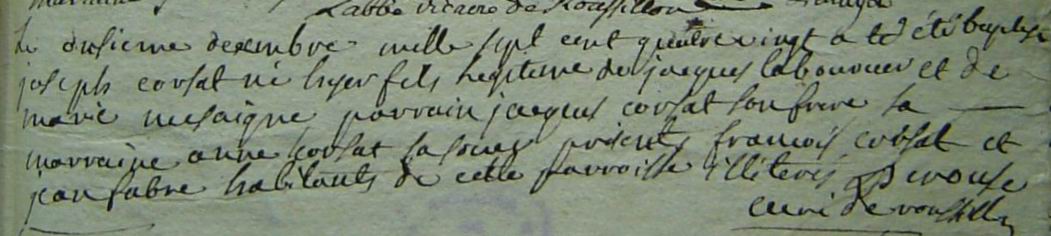 Labbé vicaire de Roussillon
Le onsieme decembre mille sept cent quatre vingt a été baptisé
joseph corsat né hyer fils legitime de jacques laboureur et de
marie mesaigne parrain jacques corsat son frere la
marraine anne corsat sa soeur présents francois corsat et
jean fabre habitants de cette parroisse illiterés Perouse
curé de roussillon